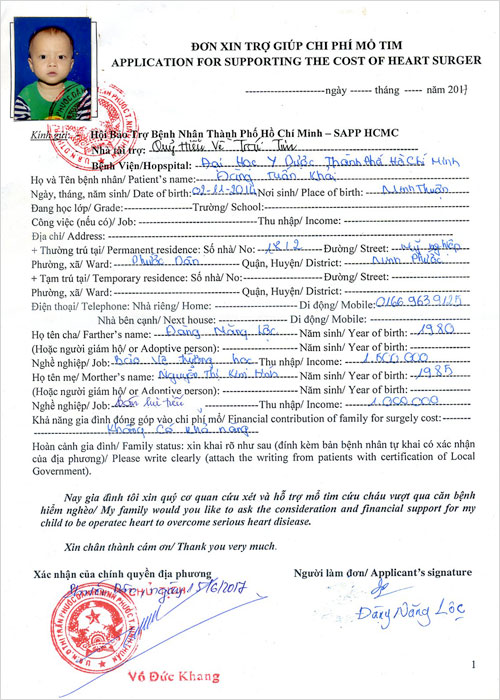 ĐƠN XIN TRỢ GIÚP CHI PHÍ MỔ TIM
APPLICATION FOR SUPPORTING THE COST OF HEART SURGER
ngày ------ tháng --- năm 2017
Kính gửi: Hội Bảo Trợ Bệnh Nhân Thành Phố Hồ Chí Minh – SAPP HCMC
Nhà tài trợ: Quỹ Hiểu Về Trái Tim
Bệnh Viện/Hopspital: Đại Học Y Dược Thành Phố Hồ Chí Minh
Họ và Tên bệnh nhân/ Patient's name: Đàng Tuấn Khải
Ngày, tháng, năm sinh/ Date of birth: 02-11-2016 Nơi sinh/ Place of birth: Ninh Thuận
Đang học lớp/ Grade: Trường/ School:
Công việc (nếu có)/ Job: Thu nhập/ Income:
Địa chỉ/ Address:
+ Thường trú tại/ Permanent residence: Số nhà/ No: 1812 Đường/ Street: Mỹ Nghiệp
Phường, xã/ Ward: Phước Dân Quận, Huyện/ District: Ninh Phước
+ Tạm trú tại/ Temporary residence: Số nhà/ No: Đường/ Street:
Phường, xã/ Ward: Quận, Huyện/ District:
Điện thoại/ Telephone: Nhà riêng/ Home: Di động/ Mobile: 0166.9639125
Nhà bên cạnh/ Next house: Di động/ Mobile:
Họ tên cha/ Farther's name: Đàng Năng Lộc Năm sinh/ Year of birth: 1980
(Hoặc người giám hộ/ or Adoptive person): Năm sinh/ Year of birth:
Nghề nghiệp/ Job: Bảo Vệ trường học Thu nhập/ Income: 1.500.000
Họ tên mẹ/ Morther's name: Nguyễn Thị Kim Hinh Năm sinh/ Year of birth: 1985
(Hoặc người giám hộ/ or Adontive person): Năm sinh/ Year of birth:
Nghề nghiệp/ Job: Thu nhập/ Income: 1.000.000
Khả năng gia đình đóng góp vào chi phí mổ/ Financial contribution of family for surgely cost:
Không có khả năng
Hoàn cảnh gia đình/ Family status: xin khai rõ như sau (đính kèm bản bệnh nhân tự khai có xác nhận
của địa phương)/ Please write clearly (attach the writing from patients with certification of Local
Government).
Nay gia đình tôi xin quý cơ quan cứu xét và hỗ trợ mổ tim cứu cháu vượt qua căn bệnh
hiểm nghèo/ My family would you like to ask the consideration and financial support for my
child to be operatec heart to overcome serious heart disiease.
Xin chân thành cám ơn/ Thank you very much.
Xác nhận của chính quyền địa phương
Người làm đơn/ Applicant's signature
ngày 15/6/2017
Đàng Năng Lộc
Võ Đức Khang
1